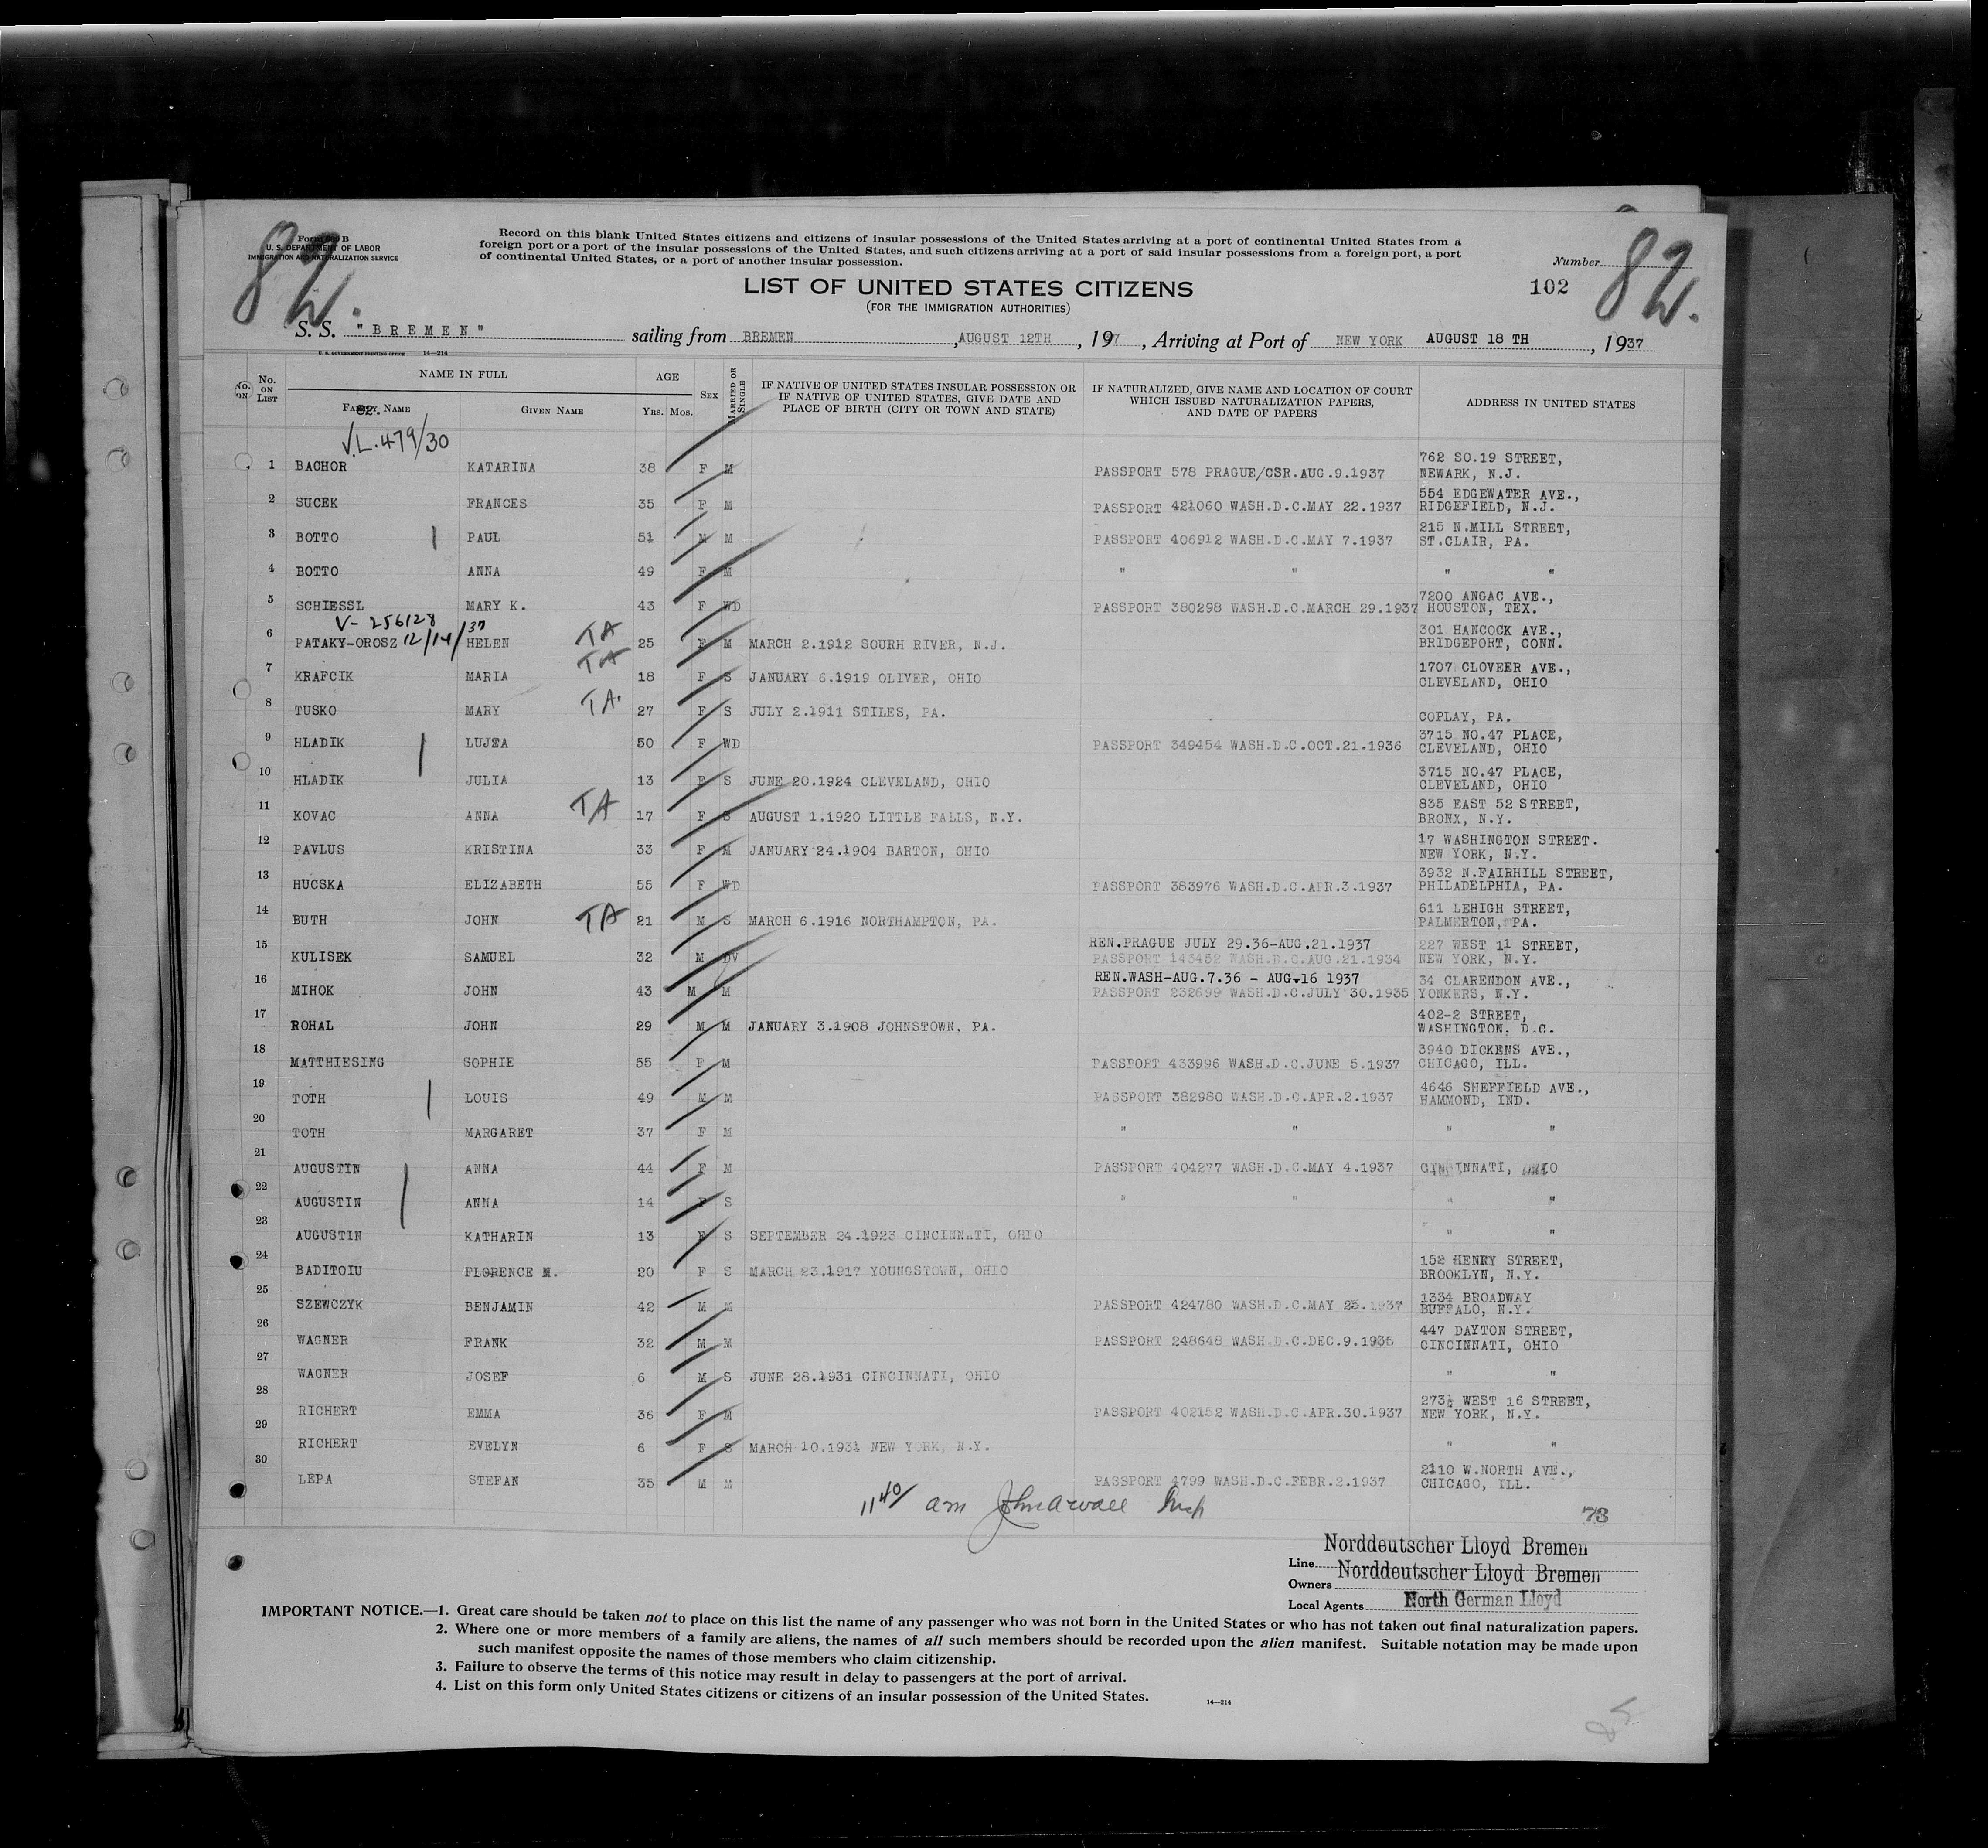 82.
Form 630 B
U. S. DEPARTMENT OF LABOR
IMMIGRATION AND NATURALIZATION SERVICE
Record on this blank United States citizens and citizens of insular possessions of the United States arriving at a port of continental United States from a
foreign port or a port of the insular possessions of the United States, and such citizens arriving at a port of said insular possessions from a foreign port, a port
of continental United States, or a port of another insular possession.
Number
82.
LIST OF UNITED STATES CITIZENS
102
(FOR THE IMMIGRATION AUTHORITIES)
S. S. "BREMEN" sailing from BREMEN, AUGUST 12TH, 197, Arriving at Port of NEW YORK AUGUST 18 TH, 1937
U. S. GOVERNMENT PRINTING OFFICE 14—214
No. ON LIST
NAME IN FULL
FAMILY NAME
GIVEN NAME
AGE
YRS. MOS.
SEX
MARRIED OR SINGLE
IF NATIVE OF UNITED STATES INSULAR POSSESSION OR
IF NATIVE OF UNITED STATES, GIVE DATE AND
PLACE OF BIRTH (CITY OR TOWN AND STATE)
IF NATURALIZED, GIVE NAME AND LOCATION OF COURT
WHICH ISSUED NATURALIZATION PAPERS,
AND DATE OF PAPERS
ADDRESS IN UNITED STATES
82.
V.L.479/30
1 BACHOR KATARINA 38 F M PASSPORT 578 PRAGUE/CSR.AUG.9.1937 762 SO.19 STREET,
NEWARK, N.J.
2 SUCEK FRANCES 35 F M PASSPORT 421060 WASH.D.C.MAY 22.1937 554 EDGEWATER AVE.,
RIDGEFIELD, N.J.
3 BOTTO PAUL 51 M M PASSPORT 406912 WASH.D.C.MAY 7.1937 215 N.MILL STREET,
ST.CLAIR, PA.
4 BOTTO ANNA 49 F M " " " "
5 SCHIESSL MARY K. 43 F WD PASSPORT 380298 WASH.D.C.MARCH 29.1937 7200 ANGAC AVE.,
HOUSTON, TEX.
V- 256128
6 PATAKY-OROSZ 12/14/37 HELEN TA 25 F M MARCH 2.1912 SOURH RIVER, N.J. 301 HANCOCK AVE.,
BRIDGEPORT, CONN.
7 KRAFCIK MARIA TA 18 F S JANUARY 6.1919 OLIVER, OHIO 1707 CLOVEER AVE.,
CLEVELAND, OHIO
8 TUSKO MARY TA. 27 F S JULY 2.1911 STILES, PA. COPLAY, PA.
9 HLADIK LUJZA 50 F WD PASSPORT 349454 WASH.D.C.OCT.21.1936 3715 NO.47 PLACE,
CLEVELAND, OHIO
10 HLADIK JULIA 13 F S JUNE 20.1924 CLEVELAND, OHIO 3715 NO.47 PLACE,
CLEVELAND, OHIO
11 KOVAC ANNA TA 17 F S AUGUST 1.1920 LITTLE FALLS, N.Y. 835 EAST 52 STREET,
BRONX, N.Y.
12 PAVLUS KRISTINA 33 F M JANUARY 24.1904 BARTON, OHIO 17 WASHINGTON STREET.
NEW YORK, N.Y.
13 HUCSKA ELIZABETH 55 F WD PASSPORT 383976 WASH.D.C.APR.3.1937 3932 N.FAIRHILL STREET,
PHILADELPHIA, PA.
14 BUTH JOHN TA 21 M S MARCH 6.1916 NORTHAMPTON, PA. 611 LEHIGH STREET,
PALMERTON, PA.
15 KULISEK SAMUEL 32 M DV REN.PRAGUE JULY 29.36-AUG.21.1937 227 WEST 11 STREET,
PASSPORT 143452 WASH.D.C.AUG.21.1934 NEW YORK, N.Y.
16 MIHOK JOHN 43 M M REN.WASH-AUG.7.36 - AUG.16 1937 34 CLARENDON AVE.,
PASSPORT 232699 WASH.D.C.JULY 30.1935 YONKERS, N.Y.
17 ROHAL JOHN 29 M M JANUARY 3.1908 JOHNSTOWN. PA. 402-2 STREET,
WASHINGTON. D.C.
18 MATTHIESING SOPHIE 55 F M PASSPORT 433996 WASH.D.C.JUNE 5.1937 3940 DICKENS AVE.,
CHICAGO, ILL.
19 TOTH LOUIS 49 M M PASSPORT 382980 WASH.D.C.APR.2.1937 4646 SHEFFIELD AVE.,
HAMMOND, IND.
20 TOTH MARGARET 37 F M " " " "
21 AUGUSTIN ANNA 44 F M PASSPORT 404277 WASH.D.C.MAY 4.1937 CINCINNATI, OHIO
22 AUGUSTIN ANNA 14 F S " " " "
23 AUGUSTIN KATHARIN 13 F S SEPTEMBER 24.1923 CINCINNATI, OHIO " "
24 BADITOIU FLORENCE M. 20 F S MARCH 23.1917 YOUNGSTOWN, OHIO 152 HENRY STREET,
BROOKLYN, N.Y.
25 SZEWCZYK BENJAMIN 42 M M PASSPORT 424780 WASH.D.C.MAY 25.1937 1334 BROADWAY
BUFFALO, N.Y.
26 WAGNER FRANK 32 M M PASSPORT 248648 WASH.D.C.DEC.9.1935 447 DAYTON STREET,
CINCINNATI, OHIO
27 WAGNER JOSEF 6 M S JUNE 28.1931 CINCINNATI, OHIO " "
28 RICHERT EMMA 36 F M PASSPORT 402152 WASH.D.C.APR.30.1937 273½ WEST 16 STREET,
NEW YORK, N.Y.
29 RICHERT EVELYN 6 F S MARCH 10.1931 NEW YORK, N.Y. " "
30 LEPA STEFAN 35 M M PASSPORT 4799 WASH.D.C.FEBR.2.1937 2110 W.NORTH AVE.,
CHICAGO, ILL.
11 40/ am Insp
73
Norddeutscher Lloyd Bremen
Line Norddeutscher Lloyd Bremen
Owners
Local Agents North German Lloyd
IMPORTANT NOTICE.—1. Great care should be taken not to place on this list the name of any passenger who was not born in the United States or who has not taken out final naturalization papers.
2. Where one or more members of a family are aliens, the names of all such members should be recorded upon the alien manifest. Suitable notation may be made upon
such manifest opposite the names of those members who claim citizenship.
3. Failure to observe the terms of this notice may result in delay to passengers at the port of arrival.
4. List on this form only United States citizens or citizens of an insular possession of the United States.
14—214